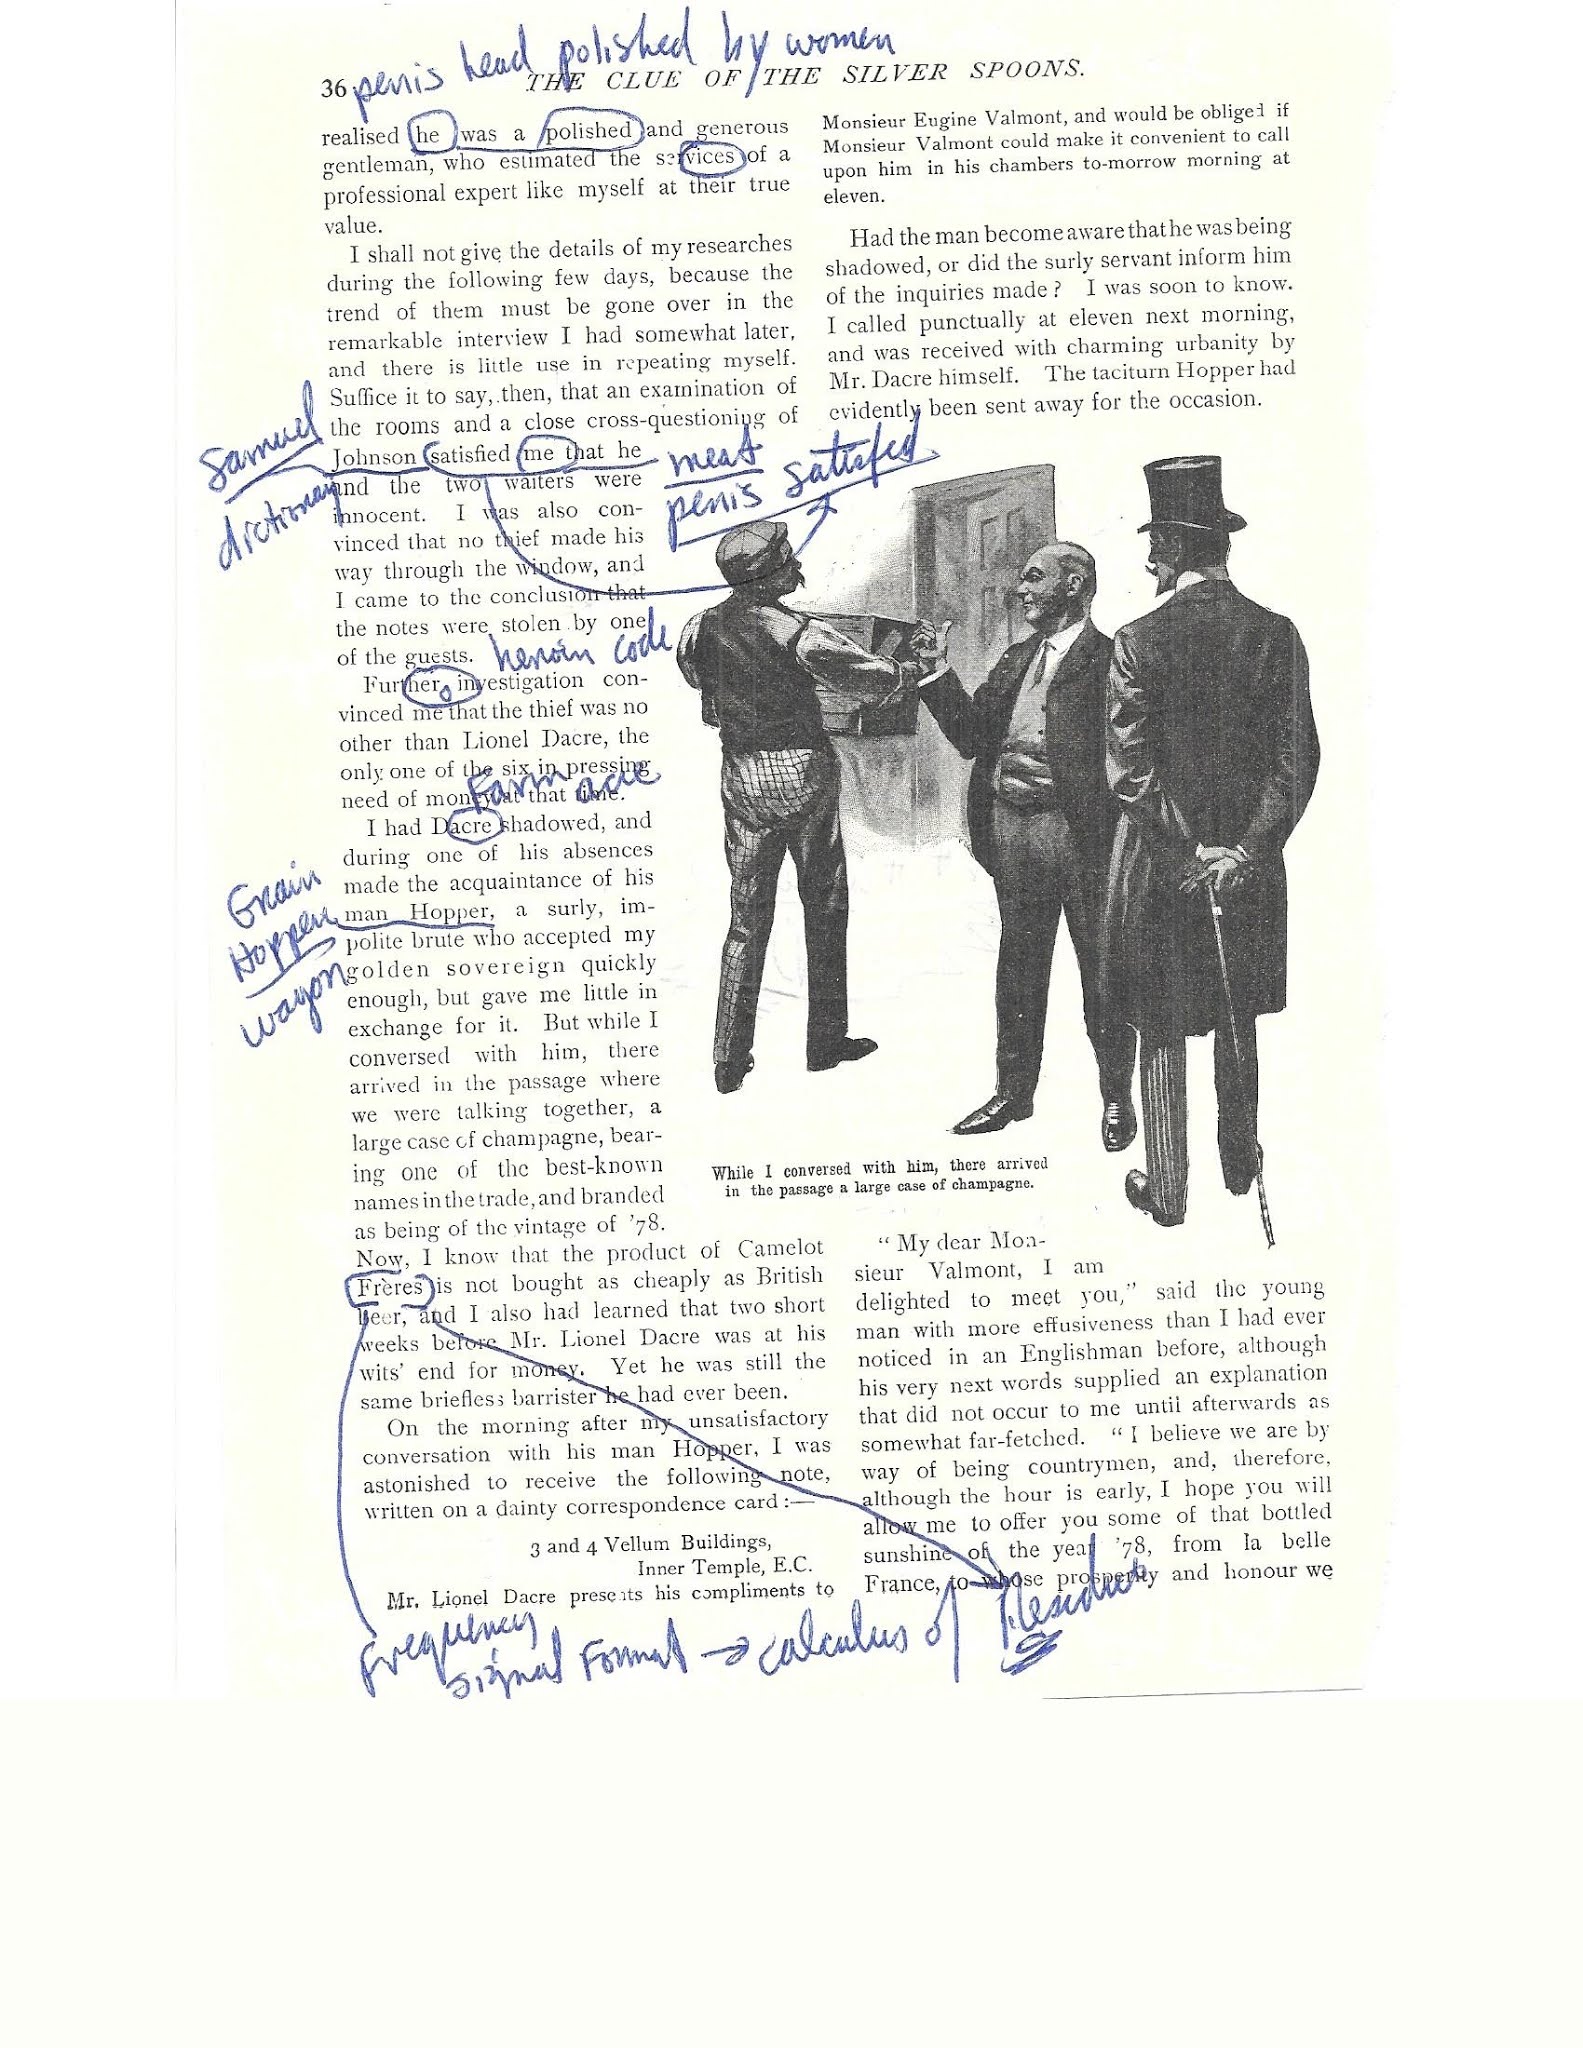 penis head polished by women
36 THE CLUE OF THE SILVER SPOONS.
realised he was a polished and generous
gentleman, who estimated the services of a
professional expert like myself at their true
value.
I shall not give the details of my researches
during the following few days, because the
trend of them must be gone over in the
remarkable interview I had somewhat later,
and there is little use in repeating myself.
Suffice it to say, then, that an examination of
the rooms and a close cross-questioning of
Johnson satisfied me that he
and the two waiters were
innocent. I was also con-
vinced that no thief made his
way through the window, and
I came to the conclusion that
the notes were stolen by one
of the guests.
Further investigation con-
vinced me that the thief was no
other than Lionel Dacre, the
only one of the six in pressing
need of money at that time.
I had Dacre shadowed, and
during one of his absences
made the acquaintance of his
man Hopper, a surly, im-
polite brute who accepted my
golden sovereign quickly
enough, but gave me little in
exchange for it. But while I
conversed with him, there
arrived in the passage where
we were talking together, a
large case of champagne, bear-
ing one of the best-known
names in the trade, and branded
as being of the vintage of '78.
Now, I know that the product of Camelot
Frères is not bought as cheaply as British
beer, and I also had learned that two short
weeks before Mr. Lionel Dacre was at his
wits' end for money. Yet he was still the
same briefless barrister he had ever been.
On the morning after my unsatisfactory
conversation with his man Hopper, I was
astonished to receive the following note,
written on a dainty correspondence card :—
3 and 4 Vellum Buildings,
Inner Temple, E.C.
Mr. Lionel Dacre presents his compliments to
Monsieur Eugine Valmont, and would be obliged if
Monsieur Valmont could make it convenient to call
upon him in his chambers to-morrow morning at
eleven.
Had the man become aware that he was being
shadowed, or did the surly servant inform him
of the inquiries made? I was soon to know.
I called punctually at eleven next morning,
and was received with charming urbanity by
Mr. Dacre himself. The taciturn Hopper had
evidently been sent away for the occasion.
While I conversed with him, there arrived
in the passage a large case of champagne.
"My dear Mon-
sieur Valmont, I am
delighted to meet you," said the young
man with more effusiveness than I had ever
noticed in an Englishman before, although
his very next words supplied an explanation
that did not occur to me until afterwards as
somewhat far-fetched. "I believe we are by
way of being countrymen, and, therefore,
although the hour is early, I hope you will
allow me to offer you some of that bottled
sunshine of the year '78, from la belle
France, to whose prosperity and honour we
Samuel
dictionary
meat
penis satisfied
heroin code
Farm acre
Grain
Hopper
wagon
frequency
signal format → calculus of Residue